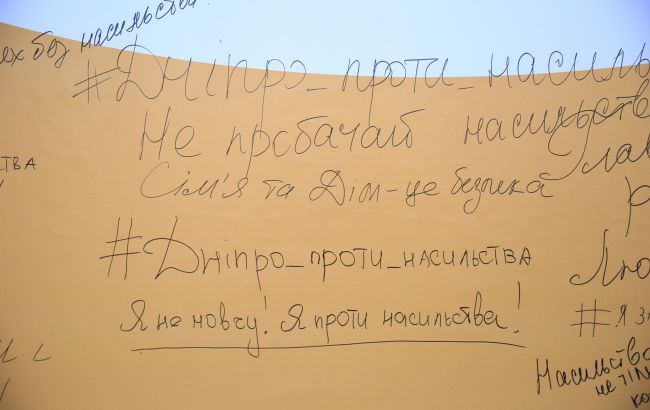 без насильства
#Дніпро_проти_насиль
Не пробачай насильств
ТВА
Сім'я та Дім - це безпека
#Дніпро_проти_насильства
# Я
Я не мовчу! Я проти насильства!
Насильство
не